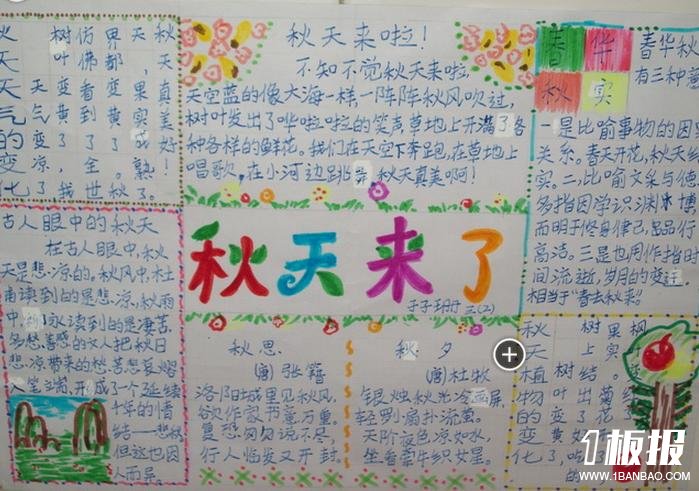 秋天天气的变化
天气变凉了
树叶变黄了,我
仿佛看到了全世
界都变黄了。秋
天,果实成熟了。
秋天真美好!
秋天来啦!
不知不觉秋天来啦,
天空蓝的像大海一样,一阵阵秋风吹过,
树叶发出了哗啦啦的笑声,草地上开满了各
种各样的鲜花。我们在天空下奔跑,在草地上
唱歌,在小河边跳舞,秋天真美啊!
春华
秋实
春华秋
有三种
是比喻事物的因
关系。春天开花,秋天
实。二,比喻文采与德
多指因学识渊博
而明于修身律己,品行
高洁。三是也用作指时
间流逝,岁月的变迁
相当于“春去秋来”
古人眼中的秋天
在古人眼中,秋
天是悲凉的。秋风中,杜
甫读到的是悲凉,秋雨
中,永读到的是凄苦,
多愁善感的文人把秋日
悲凉带来的愁苦悲哀
成了一个延续
千年的情
结——悲秋
但这也因
人而异。
秋天来了
三(2)
秋思
(唐)张籍
洛阳城里见秋风,
欲作家书意万重。
复恐匆匆说不尽,
行人临发又开封。
秋夕
(唐)杜牧
银烛秋光冷画屏,
轻罗小扇扑流萤。
天阶夜色凉如水,
坐看牵牛织女星。
秋天植物的变化
1板报
WWW.1BANBAO.COM